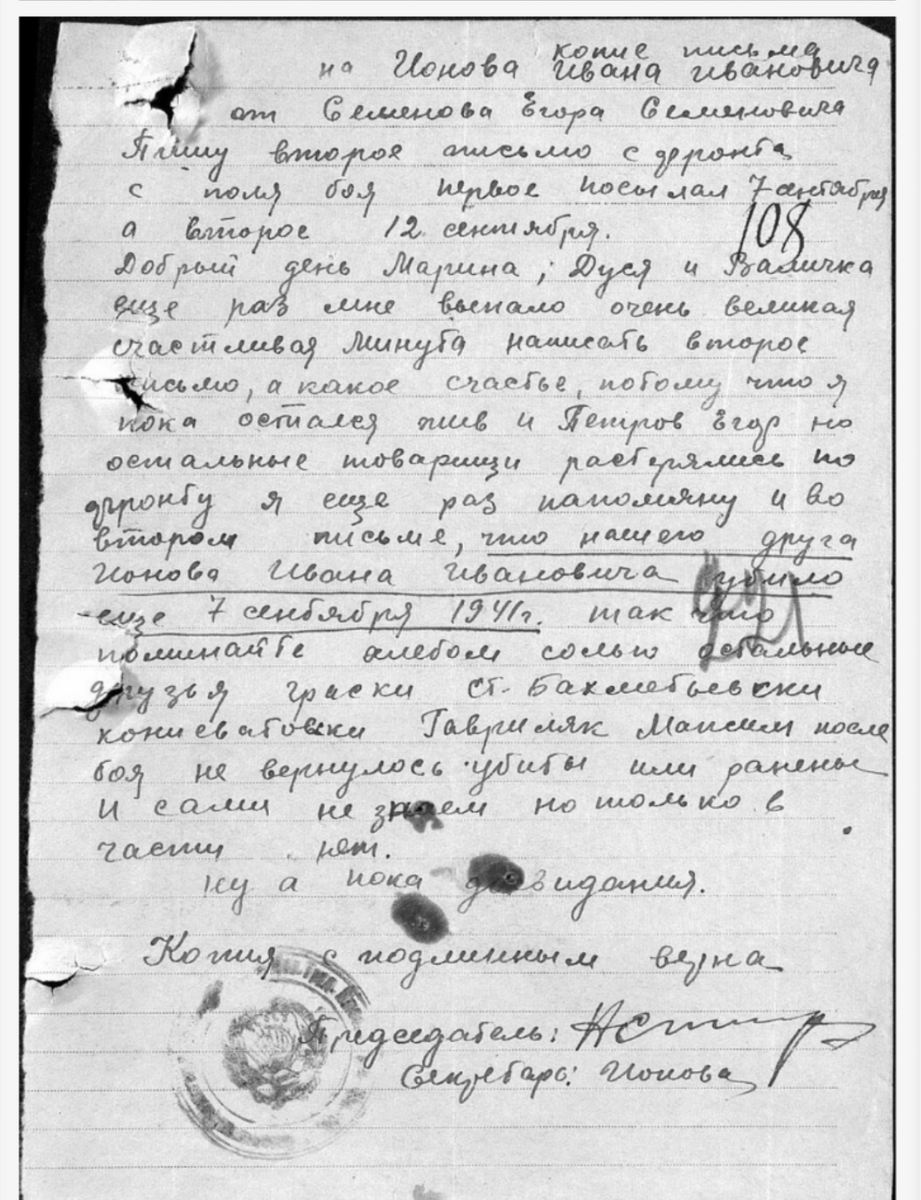 копие письма
на Ионова Ивана Ивановича
от Семенова Егора Семеновича
Пишу второе письмо с фронта
с поля боя первое посылал 7 сентября
а второе 12 сентября.
108
Добрый день Марина; Дуся и Валичка
еще раз мне выпало очень великая
счастливая минута написать второе
письмо, а какое счастье, потому что я
пока остался жив и Петров Егор но
остальные товарищи растерялись по
фронту я еще раз напомяну и во
втором письме, что нашего друга
Ионова Ивана Ивановича убило
еще 7 сентября 1941г. так что
поминайте хлебом солью остальные
друзья ст. Бахметьевски
Гавриляк Максим после
боя не вернулось убиты или ранены
И сами не знаем но только в
части нет.
ну а пока до видания.
Копия с подлинным верна
Председатель:
Секретарь: Ионова